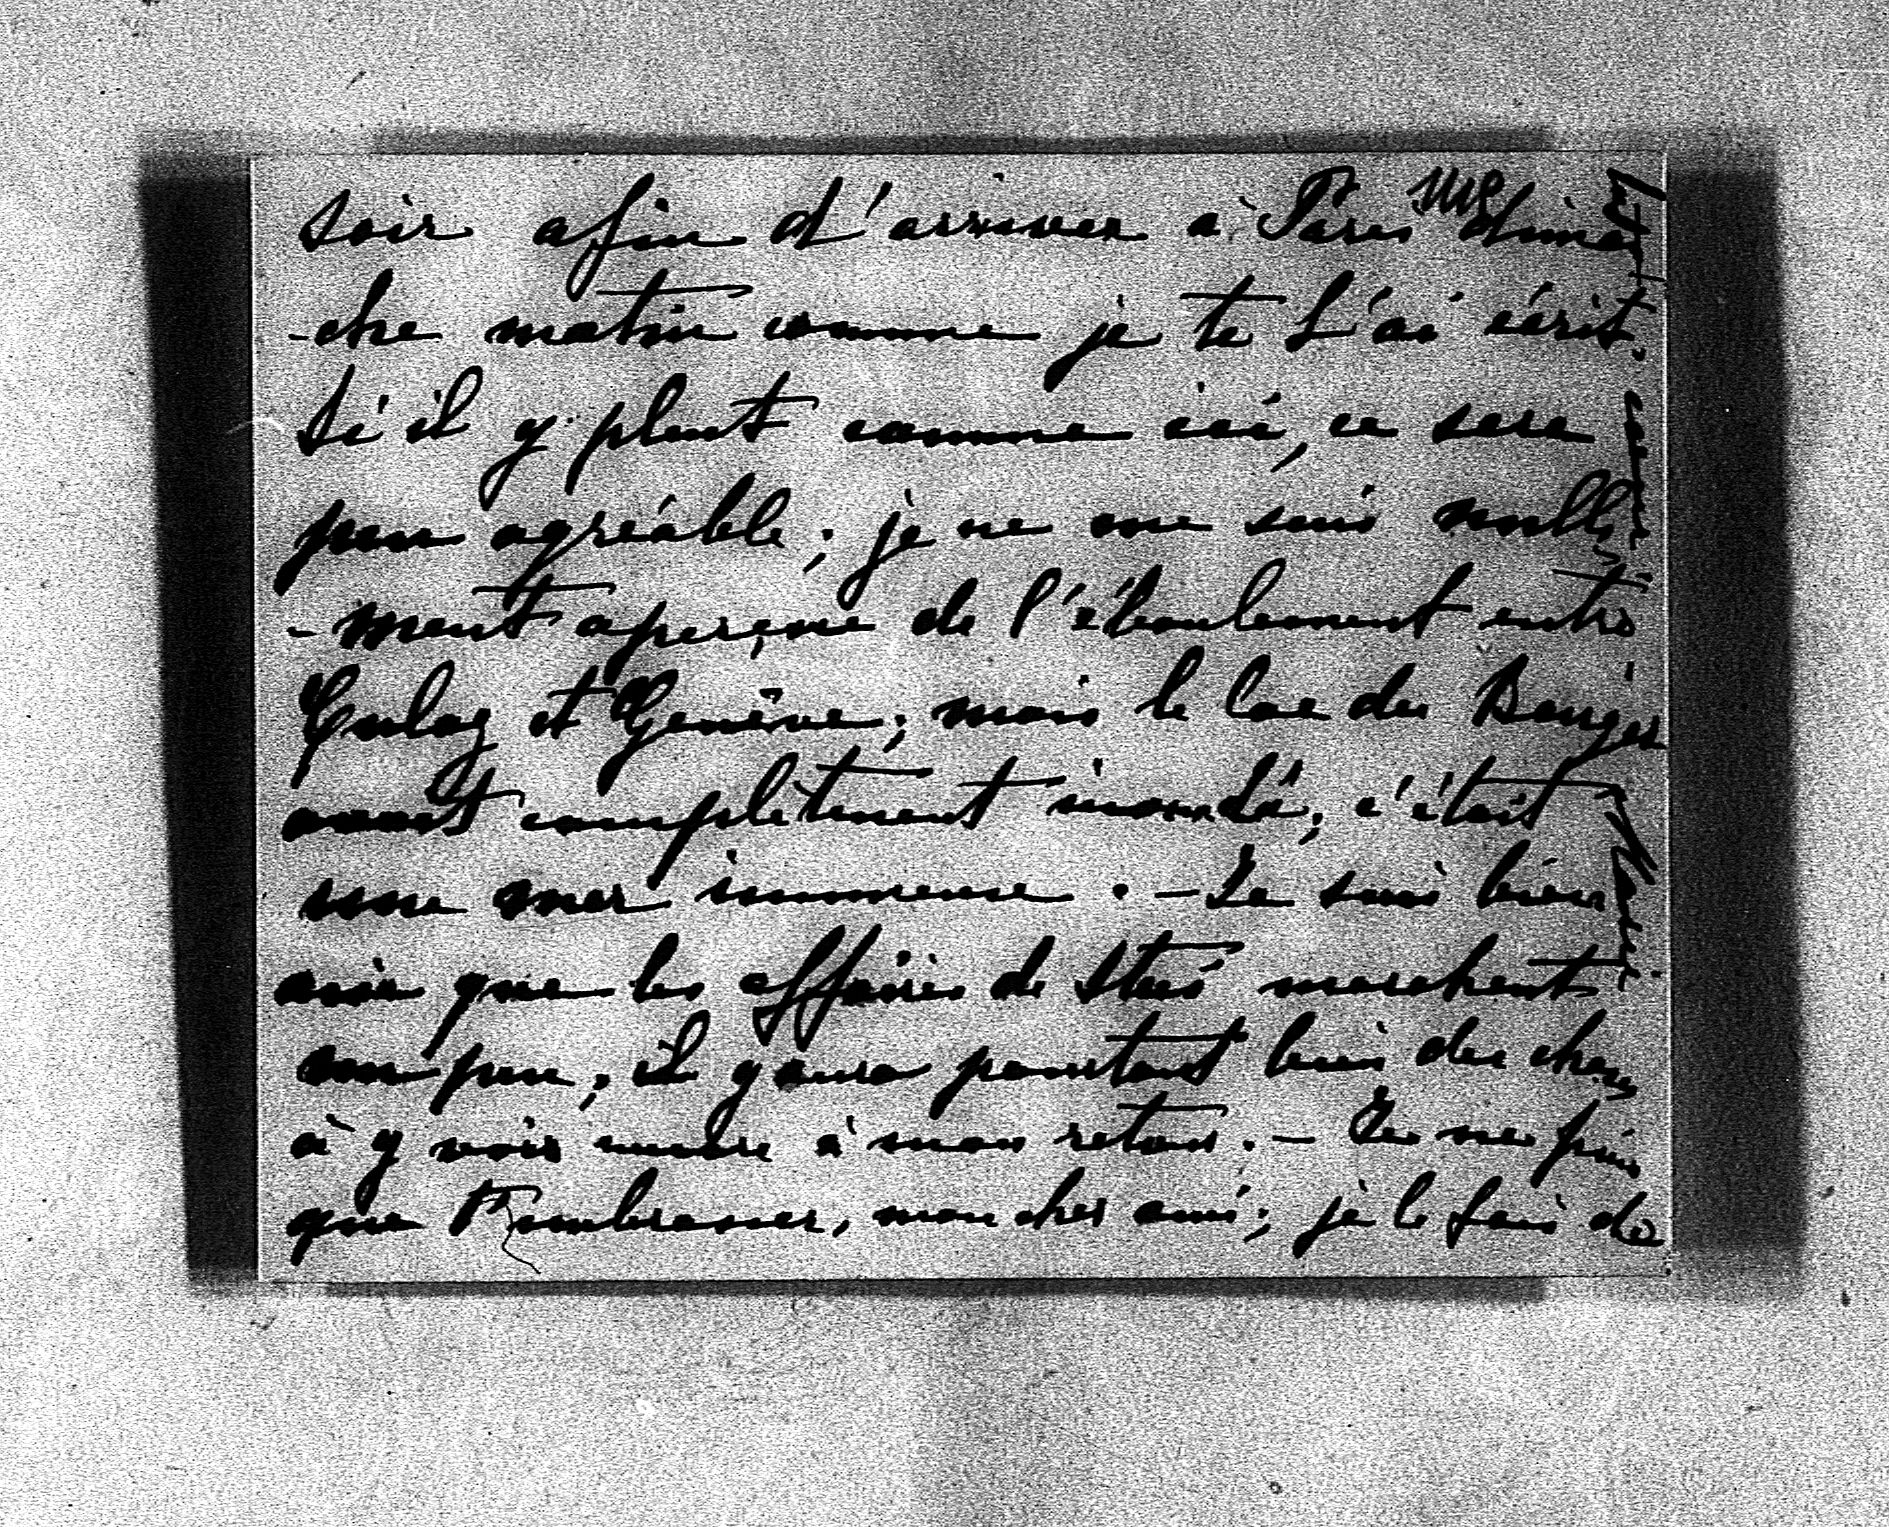 soir afin d'arriver à Paris diman
-che matin comme je te l'ai écrit.
Si il y pleut comme ici, ce sera
peu agréable; je ne me suis nulle
-ment aperçue de l'éboulement entre
Culoz et Genève; mais le lac du Bourget
avait complètement inondé; c'était
une mer immense. - Je suis bien
aise que les affaires de marchent
un peu; il y aura pourtant bien des choses
à y voir encore à mon retour. - Je ne puis
que t'embrasser, mon cher ami; je le fais de